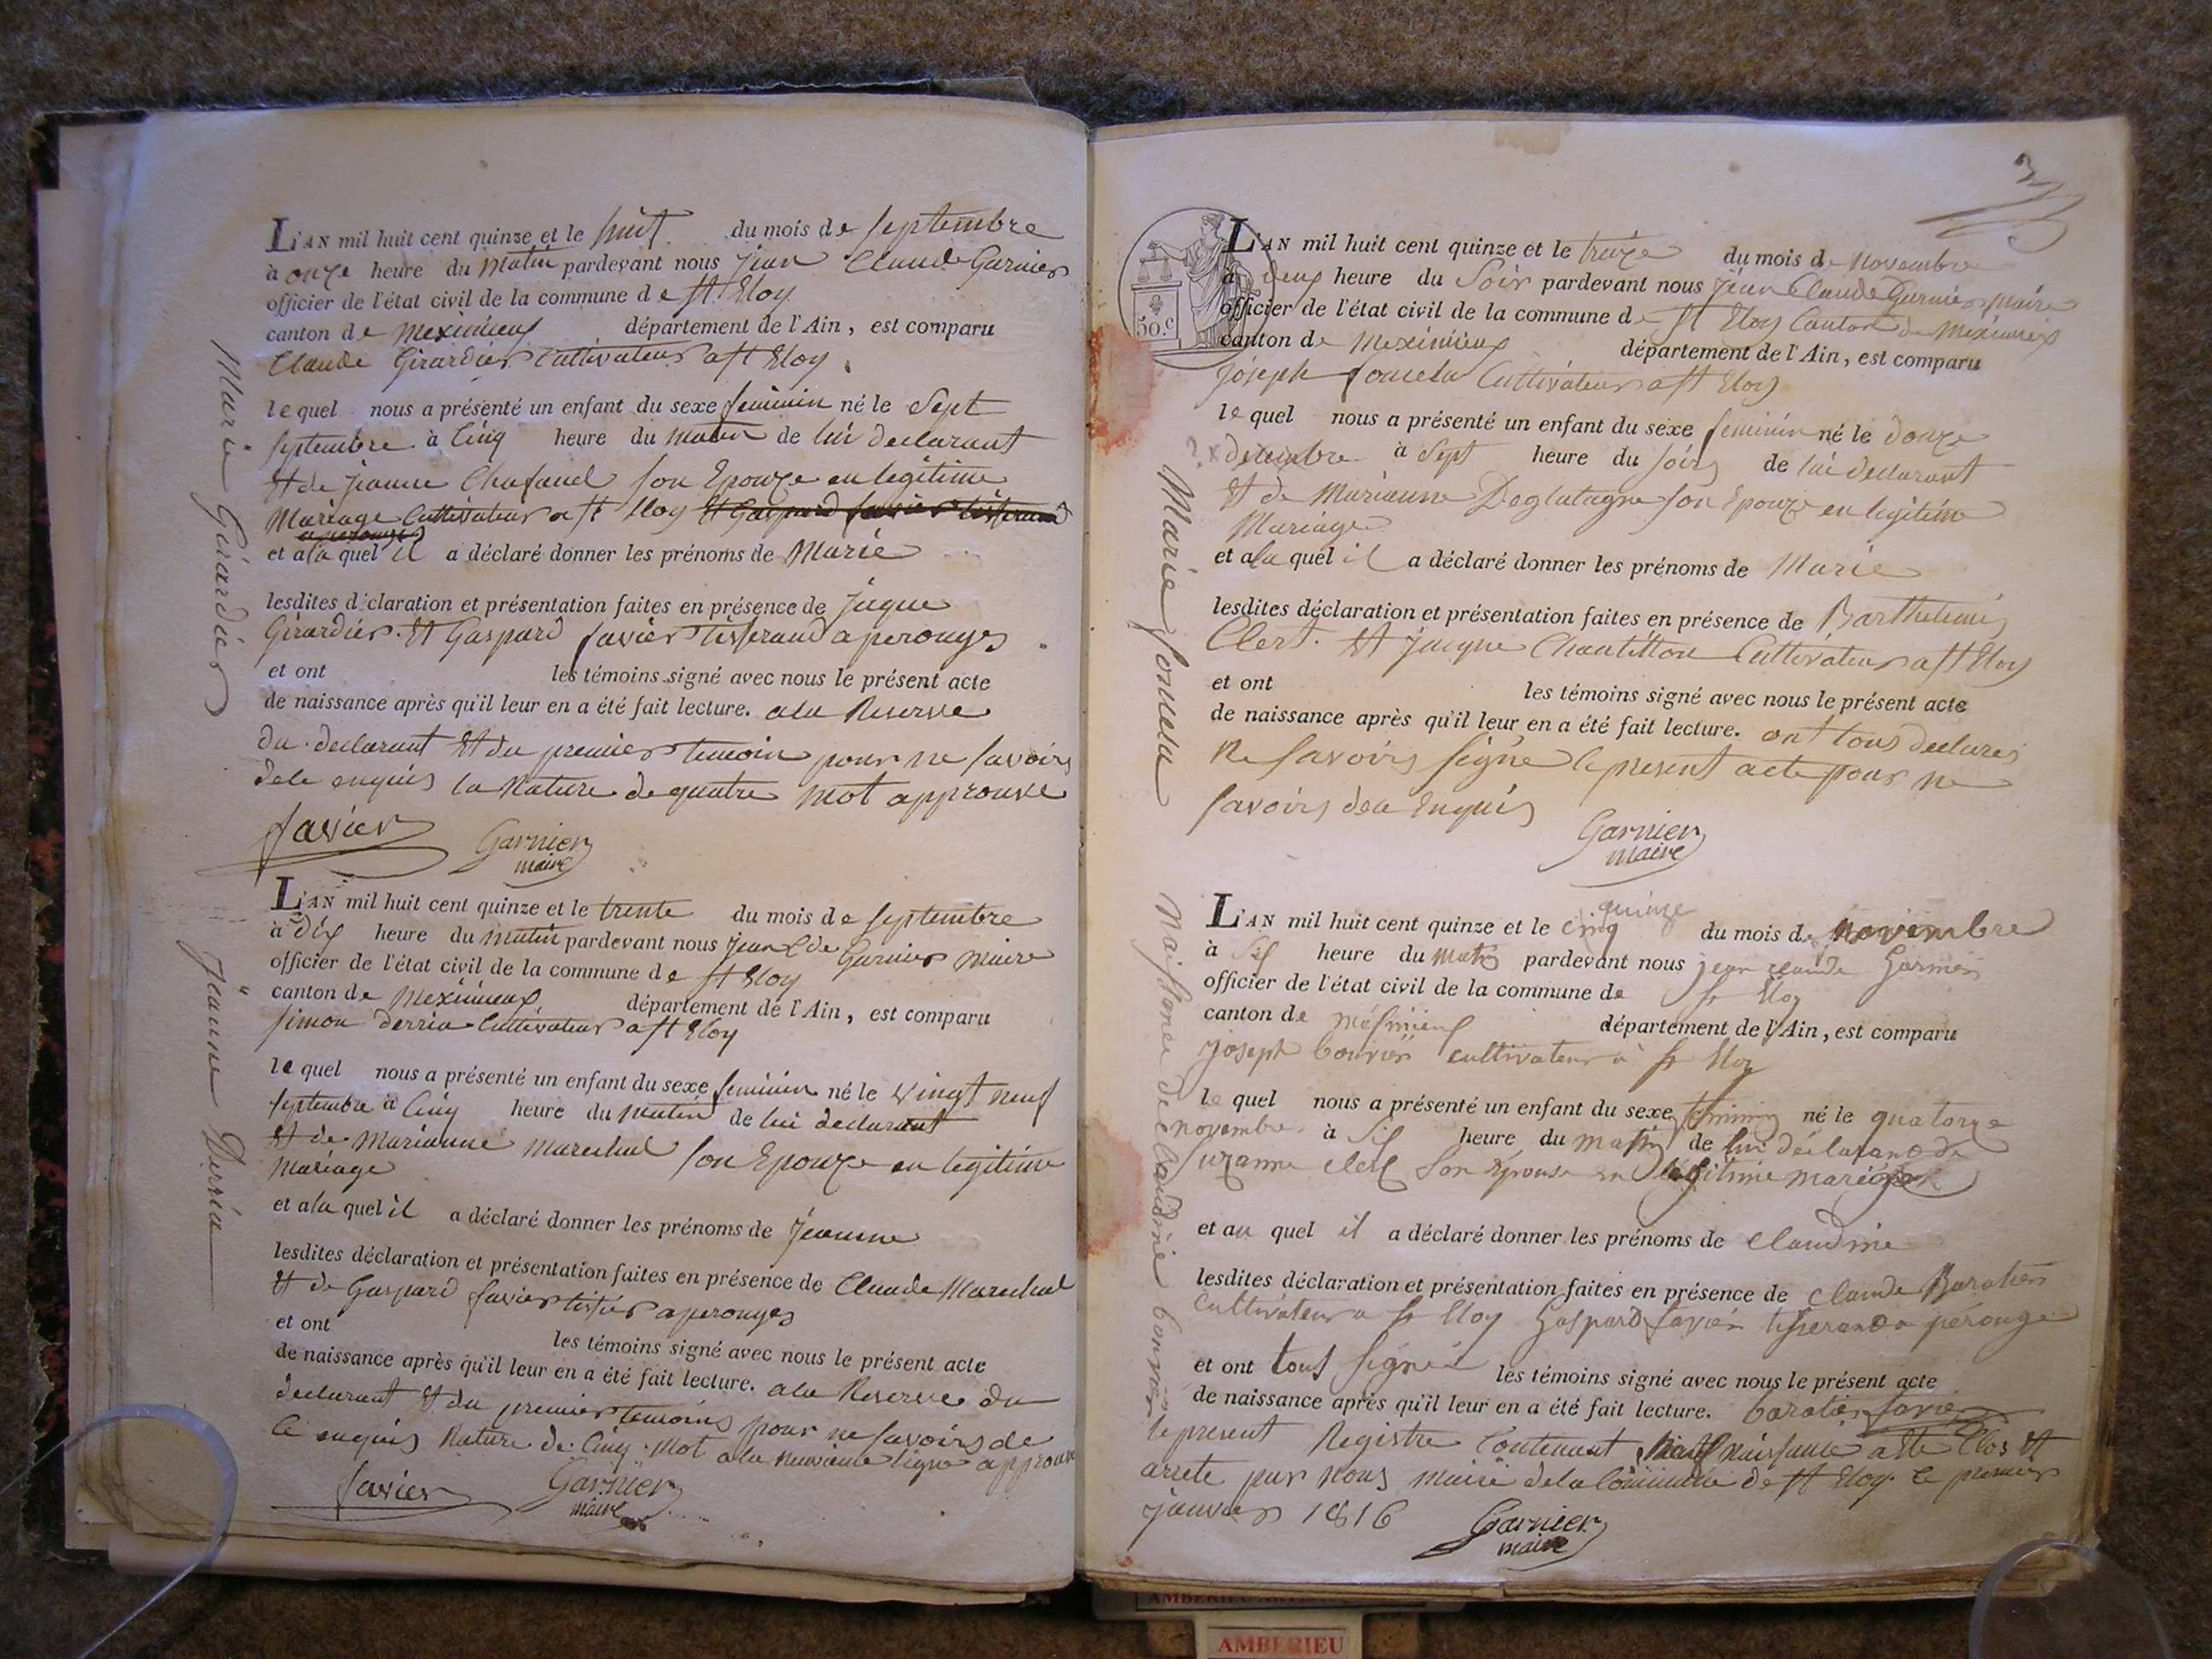 L'AN mil huit cent quinze et le huit du mois de septembre
à onze heure du Matin pardevant nous jean Claude Garnier
officier de l'état civil de la commune de st Eloy
canton de Meximieux département de l'Ain, est comparu
Claude Girardier Cultivateur a st Eloy
lequel nous a présenté un enfant du sexe feminin né le Sept
septembre à Cinq heure du matin de lui declarant
Et de jeanne son Epouze en legitime
Mariage Cultivateur a st Eloy Et Gaspard favier tisserand
a perouge
et a la quel il a déclaré donner les prénoms de Marie
lesdites déclaration et présentation faites en présence de jaque
Girardier Et Gaspard favier tisserand a perouges
et ont les témoins signé avec nous le présent acte
de naissance après qu'il leur en a été fait lecture. a la Reserve
du declarant Et du premier temoin pour ne savoir
de le enquis la Rature de quatre mot approuve
favier Garnier
maire
Marie Girardier
L'AN mil huit cent quinze et le trente du mois de septembre
à dix heure du matin pardevant nous jean Cde Garnier maire
officier de l'état civil de la commune de st Eloy
canton de Meximieux département de l'Ain, est comparu
simon derria Cultivateur a st Eloy
lequel nous a présenté un enfant du sexe feminin né le vingt neuf
septembre à Cinq heure du matin de lui declarant
Et de Marianne marechal son Epouze en legitime
mariage
et a la quel il a déclaré donner les prénoms de jeanne
lesdites déclaration et présentation faites en présence de Claude Marechal
Et de Gaspard favier a perouges
et ont les témoins signé avec nous le présent acte
de naissance après qu'il leur en a été fait lecture. a la Reserve du
declarant Et du premier temoins pour ne savoir de
le enquis Rature de Cinq Mot a la neuvieme ligne approuve
favier Garnier
maire
jeanne Derria
L'AN mil huit cent quinze et le treize du mois de novembre
à deux heure du Soir pardevant nous jean Claude Garnier maire
officier de l'état civil de la commune de st Eloy Canton de Meximieux
canton de Meximieux département de l'Ain, est comparu
50.c
joseph Cultivateur a st Eloy
lequel nous a présenté un enfant du sexe feminin né le douze
decembre à Sept heure du soir de lui declarant
Et de Marianne son Epouze en legitime
Mariage
et a la quel il a déclaré donner les prénoms de Marie
lesdites déclaration et présentation faites en présence de Barthelemi
Clert Et jacque Chantillon Cultivateur a st Eloy
et ont les témoins signé avec nous le présent acte
de naissance après qu'il leur en a été fait lecture. ont tous declarer
ne savoir signé le present acte pour ne
savoir de le Enquis
Garnier
maire
Marie
L'AN mil huit cent quinze et le cinq quinze du mois de novembre
à six heure du matin pardevant nous jean claude Garnier
officier de l'état civil de la commune de st Eloy
canton de département de l'Ain, est comparu
joseph bouvier cultivateur à st Eloy
le quel nous a présenté un enfant du sexe feminin né le quatorze
novembre à six heure du matin de lui déclarant de
suzanne clerc son épouse en légitime mariage
et au quel il a déclaré donner les prénoms de claudine
lesdites déclaration et présentation faites en présence de claude Baratier
cultivateur a st Eloy Gaspard favier tisserand a pérouge
et ont tous signé les témoins signé avec nous le présent acte
de naissance après qu'il leur en a été fait lecture. baratier favier
Naissance de claudine bouvier
le present Registre Contenant naissance a été Clos Et
arrete par nous maire de la Commune de st Eloy le premier
janvier 1816 Garnier
maire
AMBERIEU